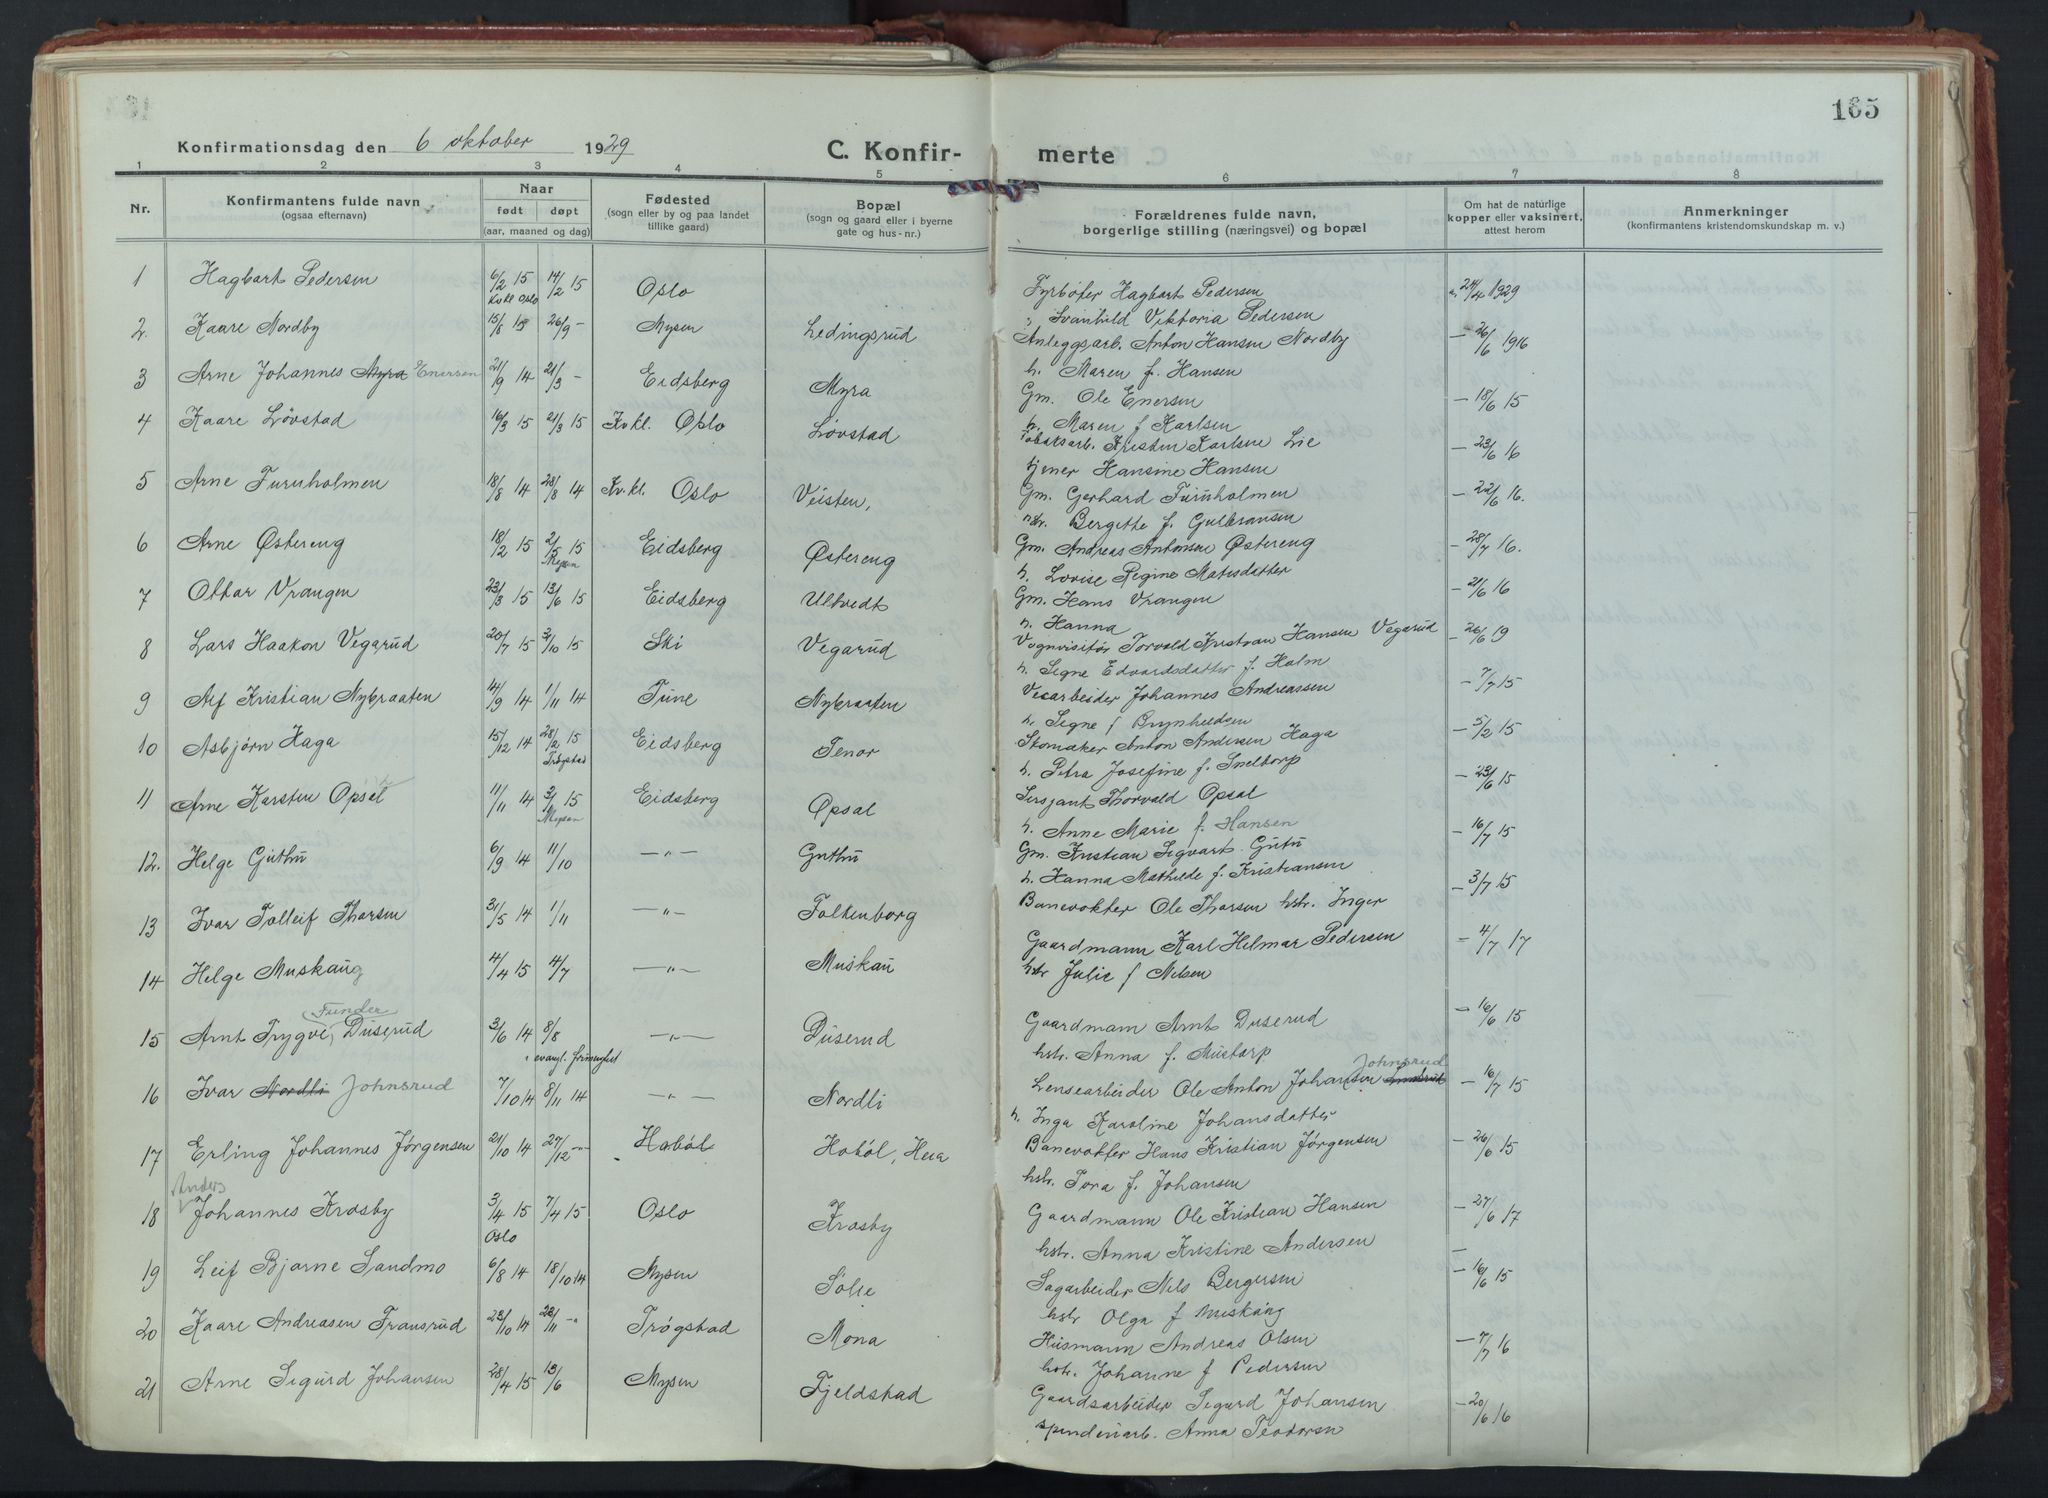 165
Konfirmationsdag den 6 oktober 1929 C. Konfir- merte
1 2 3 4 5 6 7 8
Nr. Konfirmantens fulde navn (ogsaa efternavn) Naar født døpt (aar, maaned og dag) Fødested (sogn eller by og paa landet tillike gaard) Bopæl (sogn og gaard eller i byerne gate og hus-nr.) Forældrenes fulde navn, borgerlige stilling (næringsvei) og bopæl Om hat de naturlige kopper eller vaksinert, attest herom Anmerkninger (konfirmantens kristendomskundskap m. v.)
1 Hagbart Pedersen 6/2 15 14/2 15 Kvkl Oslo Oslo Fyrbøter Hagbart Pedersen 24/4 1929
" Svanhild Viktoria Pedersen
2. Kaare Nordby 15/8 15 26/9 - Mysen Ledingsrud Anleggsarb. Anton Hansen Nordby - 26/6 1916
h. Maren f. Hansen
3 Arne Johannes Myra Enersen 21/9 14 21/3 - Eidsberg Myra Gm. Ole Enersen - 18/6 15
h. Maren f Karlsen
4 Kaare Løvstad 16/3 15 21/3 15 Kvkl. Oslo Løvstad Tobaksarb. Kristen Karlsen Lie - 23/6 16
tjener Hansine Hansen
5 Arne Furuholmen 18/8 14 28/8 14 Kv.kl. Oslo Veisten, Gm. Gerhard Furuholmen - 22/6 16.
hstr. Bergitte f. Gulbransen
6 Arne Østereng 18/2 15 2/5 15 Mysen Eidsberg Østereng Gm. Andreas Antonsen Østereng - 28/7 16.
h. Lovise Regine Matisdatter
7 Ottar Vrangen 23/3 15 13/6 15 Eidsberg Ultvedt Gm. Hans Vrangen - 21/6 16
h. Hanna
8 Lars Haakon Vegarud 20/7 15 3/10 15 Ski Vegarud Vognvisitør Torvald Kristian Hansen Vegarud - 26/6 19
h. Signe Edvardsdatter f. Holm
9 Alf Kristian Nybraaten 14/9 14 1/11 14 Tune Nybraaten Veiarbeider Johannes Andreassen - 7/7 15
h. Signe f Brynhildsen
10 Asbjørn Haga 15/12 14 28/2 15 Trøgstad Eidsberg Tenor Skomaker Anton Andersen Haga - 5/2 15
h. Petra Josefine f. Sneltorp
11 Arne Karsten Opsal 11/11 14 3/1 15 Mysen Eidsberg Opsal Sersjant Thorvald Opsal - 23/6 15
h. Anne Marie f. Hansen
12. Helge Guthu 6/9 14 11/10 -"- Guthu Gm. Kristian Sigvart Gutu - 16/7 15
h. Hanna Mathilde f. Kristiansen
13 Ivar Tolleif Thorsen 31/5 14 1/11 -"- Folkenborg Banevokter Ole Thorsen hstr. Inger - 3/7 15
14 Helge Muskaug 4/4 15 4/7 -"- Muskau Gaardmann Karl Helmar Pedersen - 4/7 17
hstr Julie f Nilsen
15 Arnt Trygve Funder Duserud 3/6 14 8/8 -"- Duserud Gaardmann Arnt Duserud - 16/6 15
i evangl. frimenighet hstr. Anna f. Mustorp
16 Ivar Nordli Johnsrud 7/10 14 8/11 14 -"- Nordli Lensearbeider Ole Anton Johansen Johnsrud - 16/7 15
h. Inga Karoline Johansdatter
17 Erling Johannes Jørgensen 21/10 14 27/12 -"- Hobøl Hobøl, Hera Banevokter Hans Kristian Jørgensen - 26/6 15
hstr. Tora f. Johansen
18 Anders Johannes Krosby 3/4 15 7/4 15 Oslo Oslo Krosby Gaardmann Ole Kristian Hansen - 27/6 17
hstr. Anna Kristine Andersen
19 Leif Bjarne Sandmo 6/8 14 18/10 14 Mysen Solie Sagarbeider Nils Bergersen - 16/6 15
hstr Olga f Muskaug
20 Kaare Andreasen Fransrud 23/10 14 28/11 -"- Trøgstad Mona Husmann Andreas Olsen - 7/7 16
hstr. Johanne f Pedersen
21 Arne Sigurd Johansen 28/4 15 13/6 Mysen Fjeldstad Gaardsarbeider Sigurd Johansen - 20/6 16
spinderiarb. Anna Teodorsn